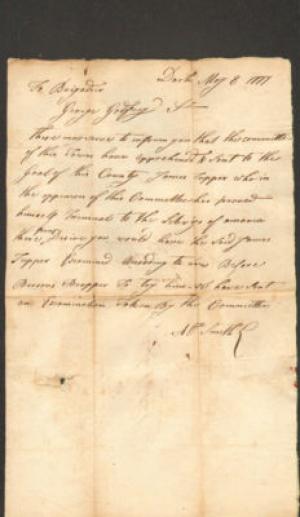 Dart. May 8. 1777
To Brigadier
George Godfrey Sr
These are to inform you that the committee
of this Town have apprehended & Sent to the
Goal of this County James Tupper who in
the oppinion of this Committee has proved
himself Inimical to the States of America
there Desire you would have the Said James
Tupper Examined According to Law Before
proper To try him we have Sent
an Examination Taken By the Committee
Smith